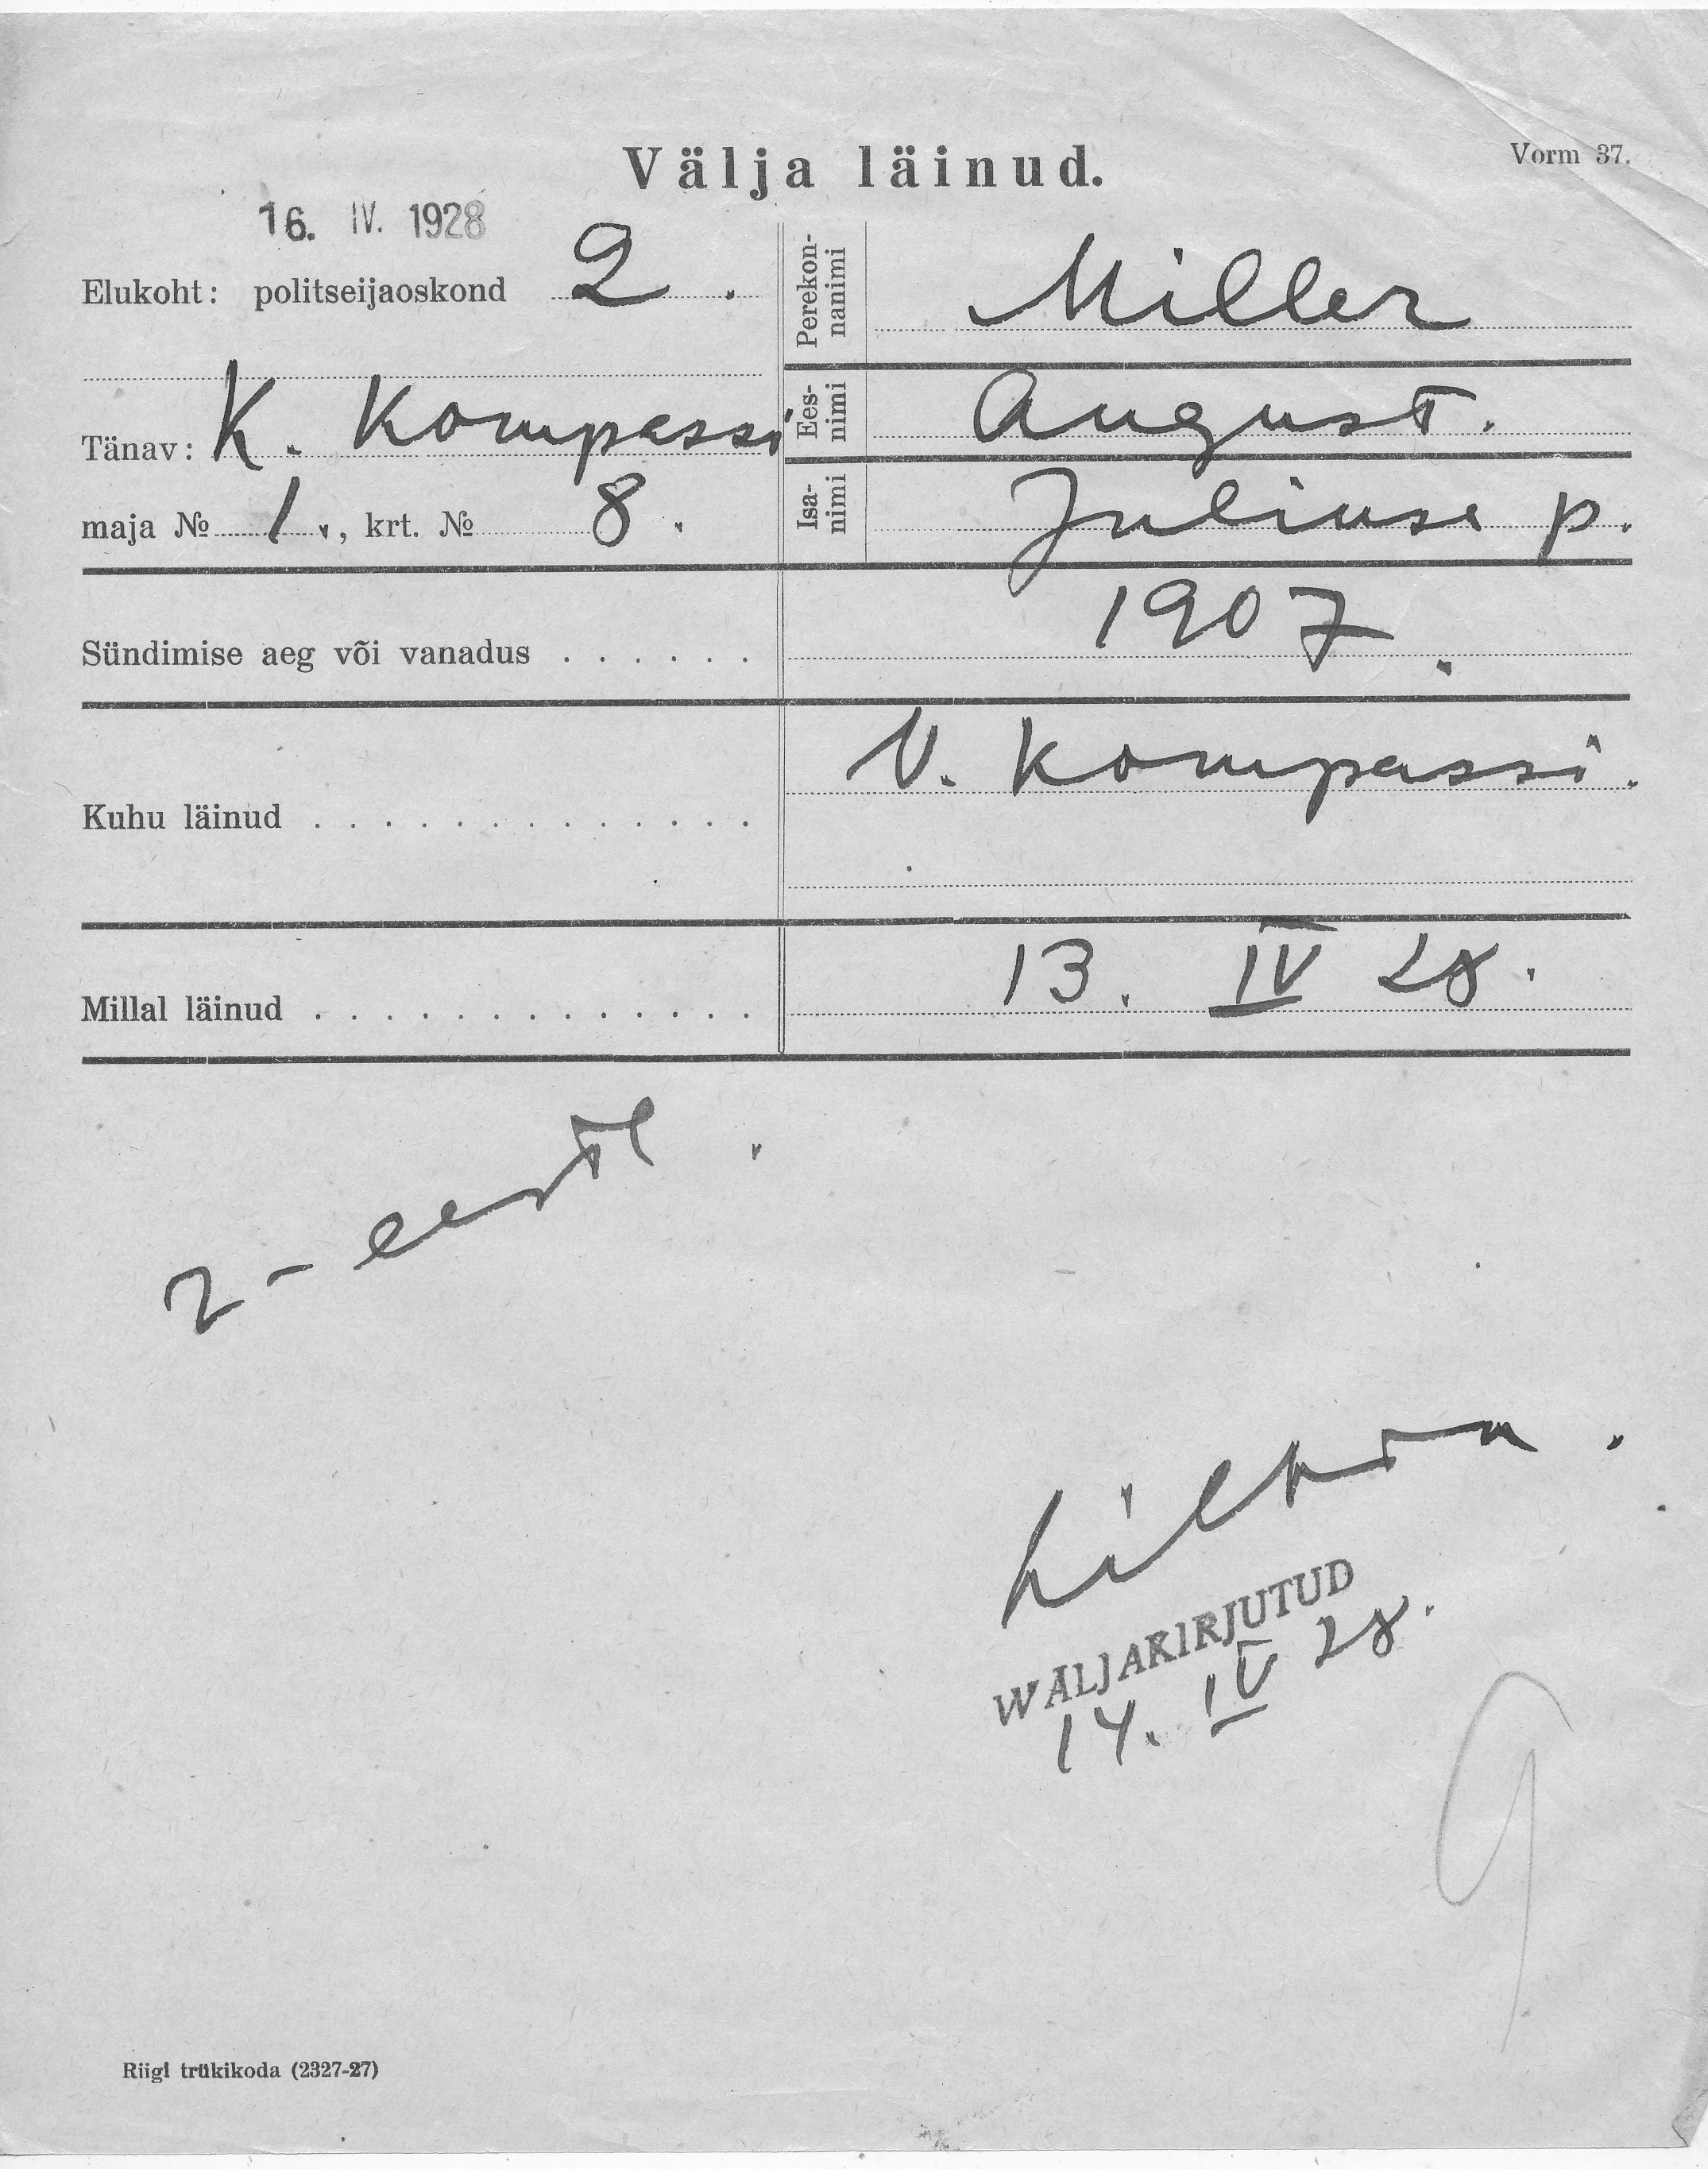 Välja läinud.
Vorm 37.
16. IV. 1928
Elukoht: politseijaoskond 2.
Tänav: K. Kompassi
maja № 1., krt. № 8.
Perekon-
nanimi
Miller
Ees-
nimi
August.
Isa-
nimi
Juliuse p.
Sündimise aeg või vanadus . . . . . . 1907.
Kuhu läinud . . . . . . . . . . . . . V. Kompassi.
Millal läinud . . . . . . . . . . . . . 13. IV 28.
2-eestl.
WÄLJAKIRJUTUD
14. IV 28.
9
Riigi trükikoda (2327-27)